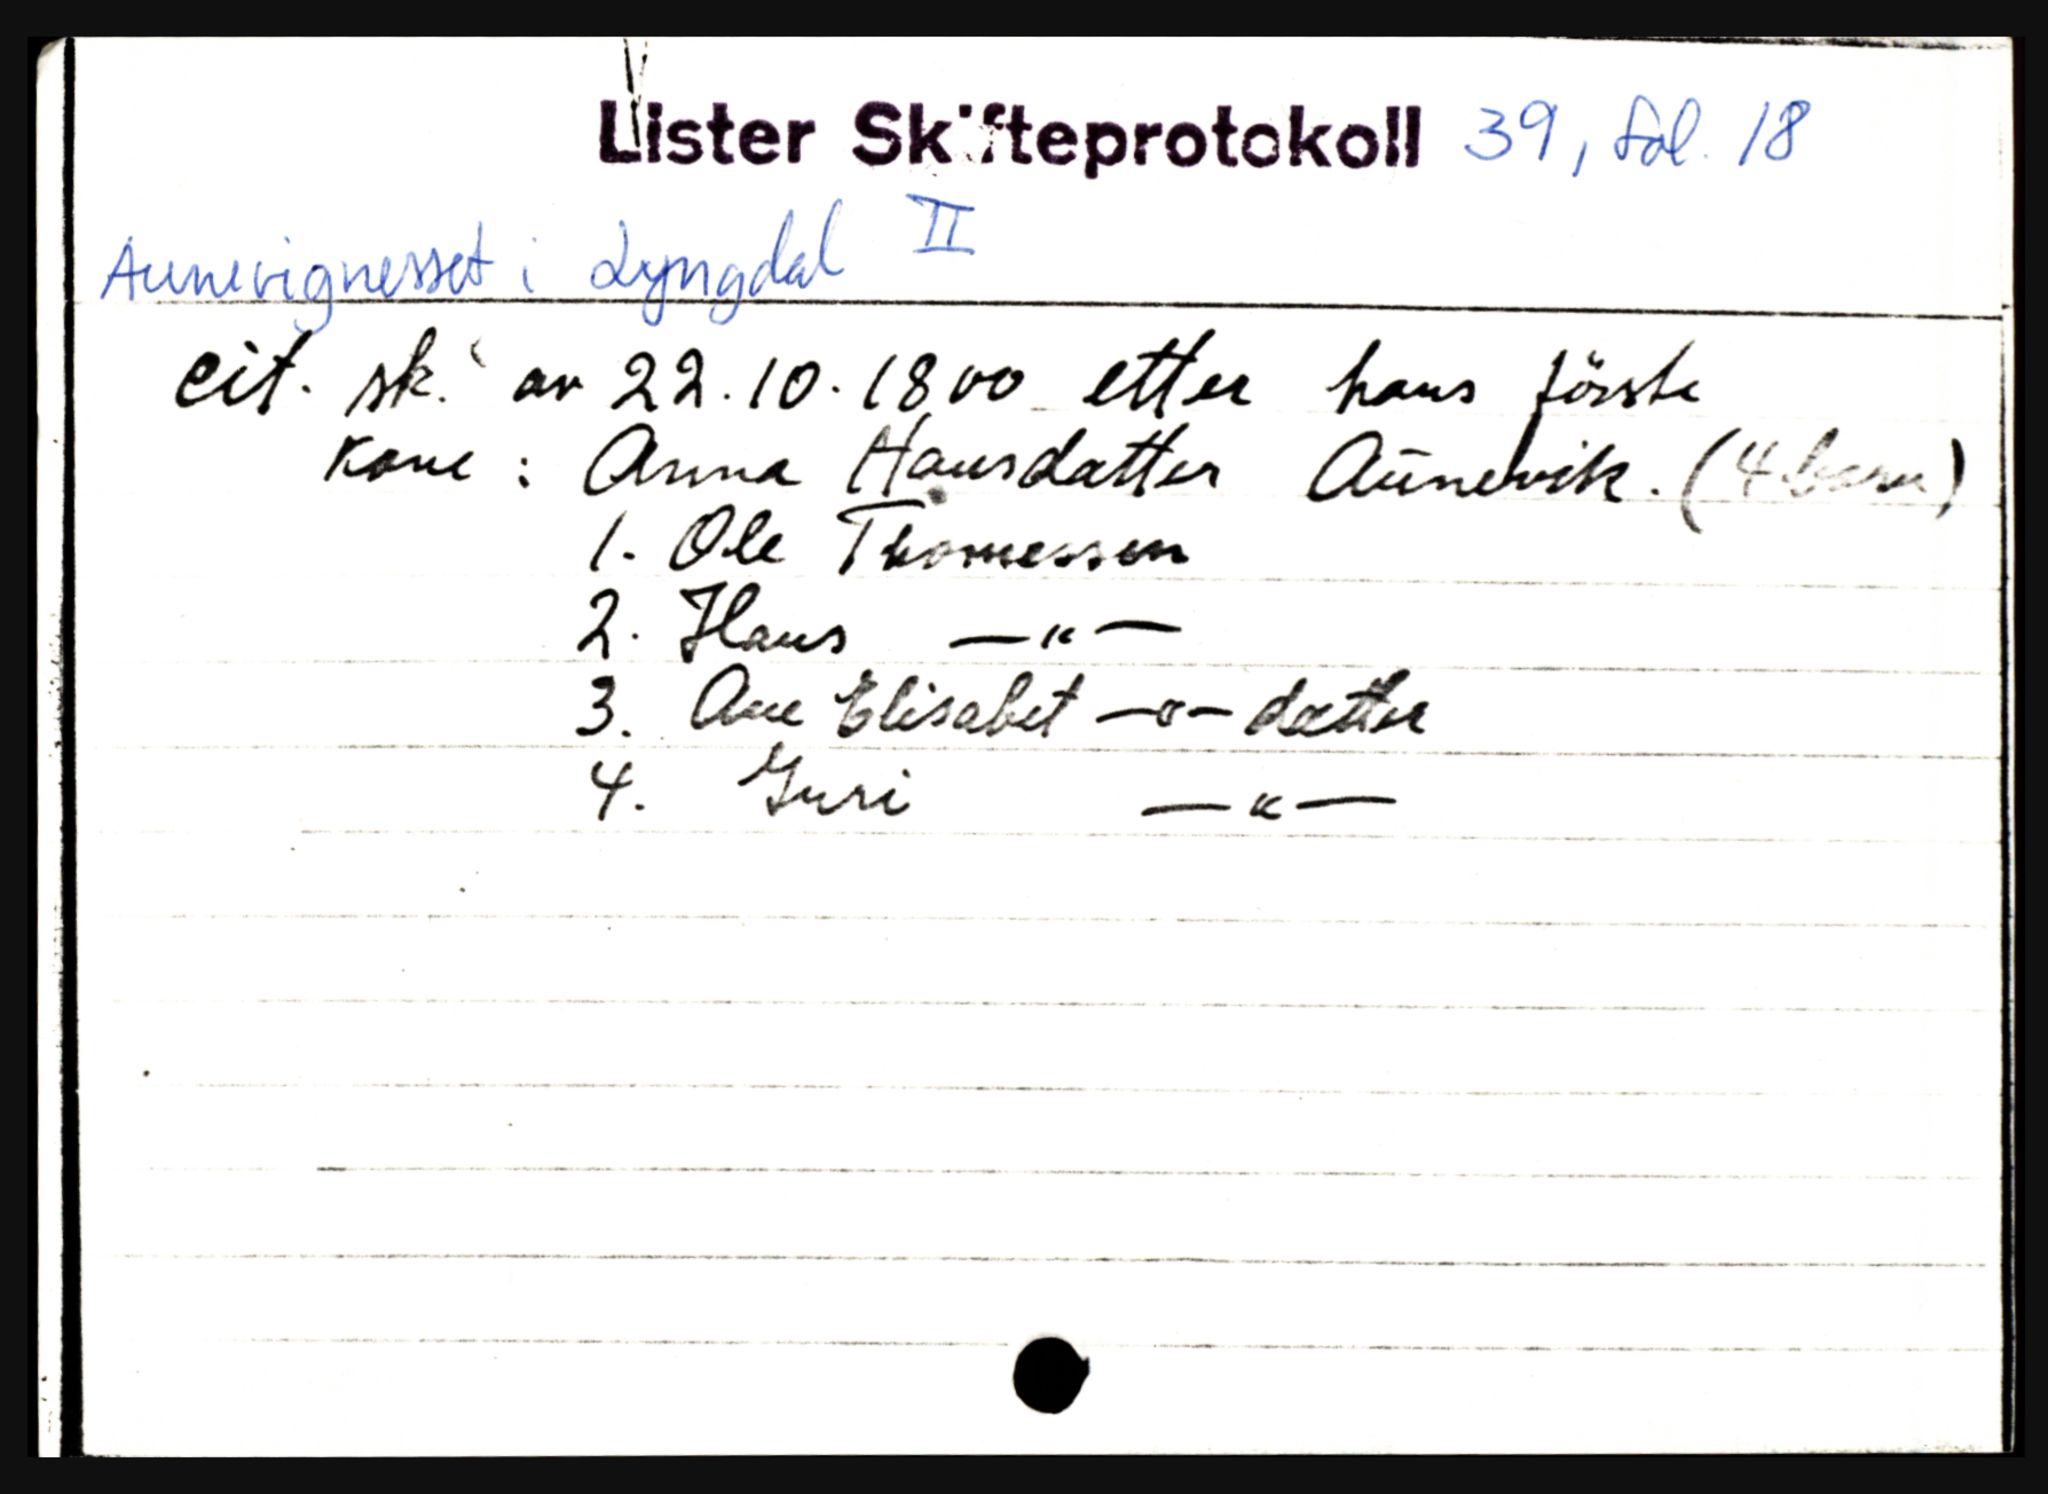 Lister Skifteprotokoll 39, fol. 18
II
Aunevignesset i Lyngdal
cit. sk. av 22.10.1800 etter hans förste
kone : Anna Hansdatter Aūnevik. (4 barn)
1. Ole Thomessen
2. Hans —"—
3. Ane Elisabet —"— datter
4. Guri —"—